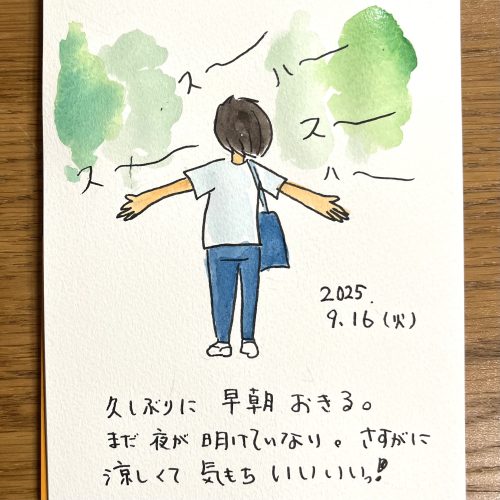 スー
ハー
スー
スー
ハー
2025.
9.16(火)
久しぶりに 早朝 おきる。
まだ 夜が 明けていない。さすがに
涼しくて 気もち いいいいっ!